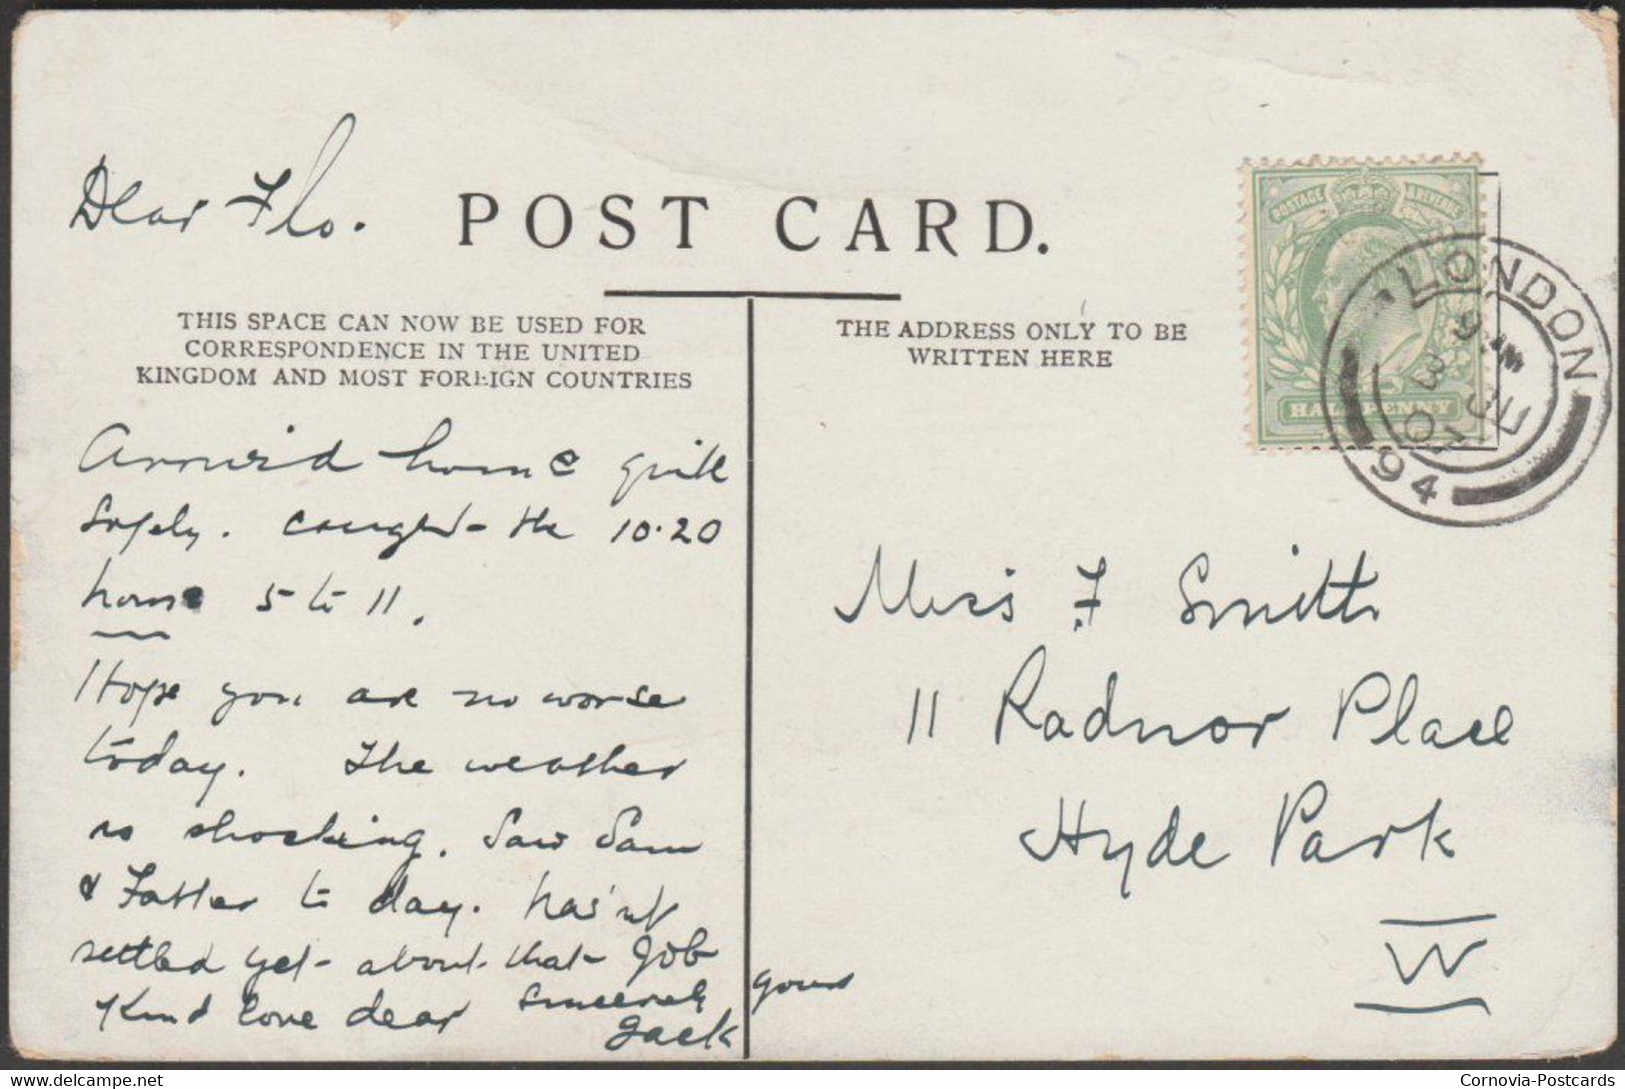 Dear Flo.
POST CARD.
THIS SPACE CAN NOW BE USED FOR
CORRESPONDENCE IN THE UNITED
KINGDOM AND MOST FOREIGN COUNTRIES
THE ADDRESS ONLY TO BE
WRITTEN HERE
POSTAGE & REVENUE
HALFPENNY
LONDON
JU 3
94
Arrived home quite
safely. Caught the 10.20
home 5 to 11.
Hope you are no worse
today. The weather
is shocking. Saw Sam
& Father to day. has'nt
settled yet about that Job
Kind love dear yours
sincerely
Jack
Miss F Smith
11 Radnor Place
Hyde Park
W
Cornovia-Postcards